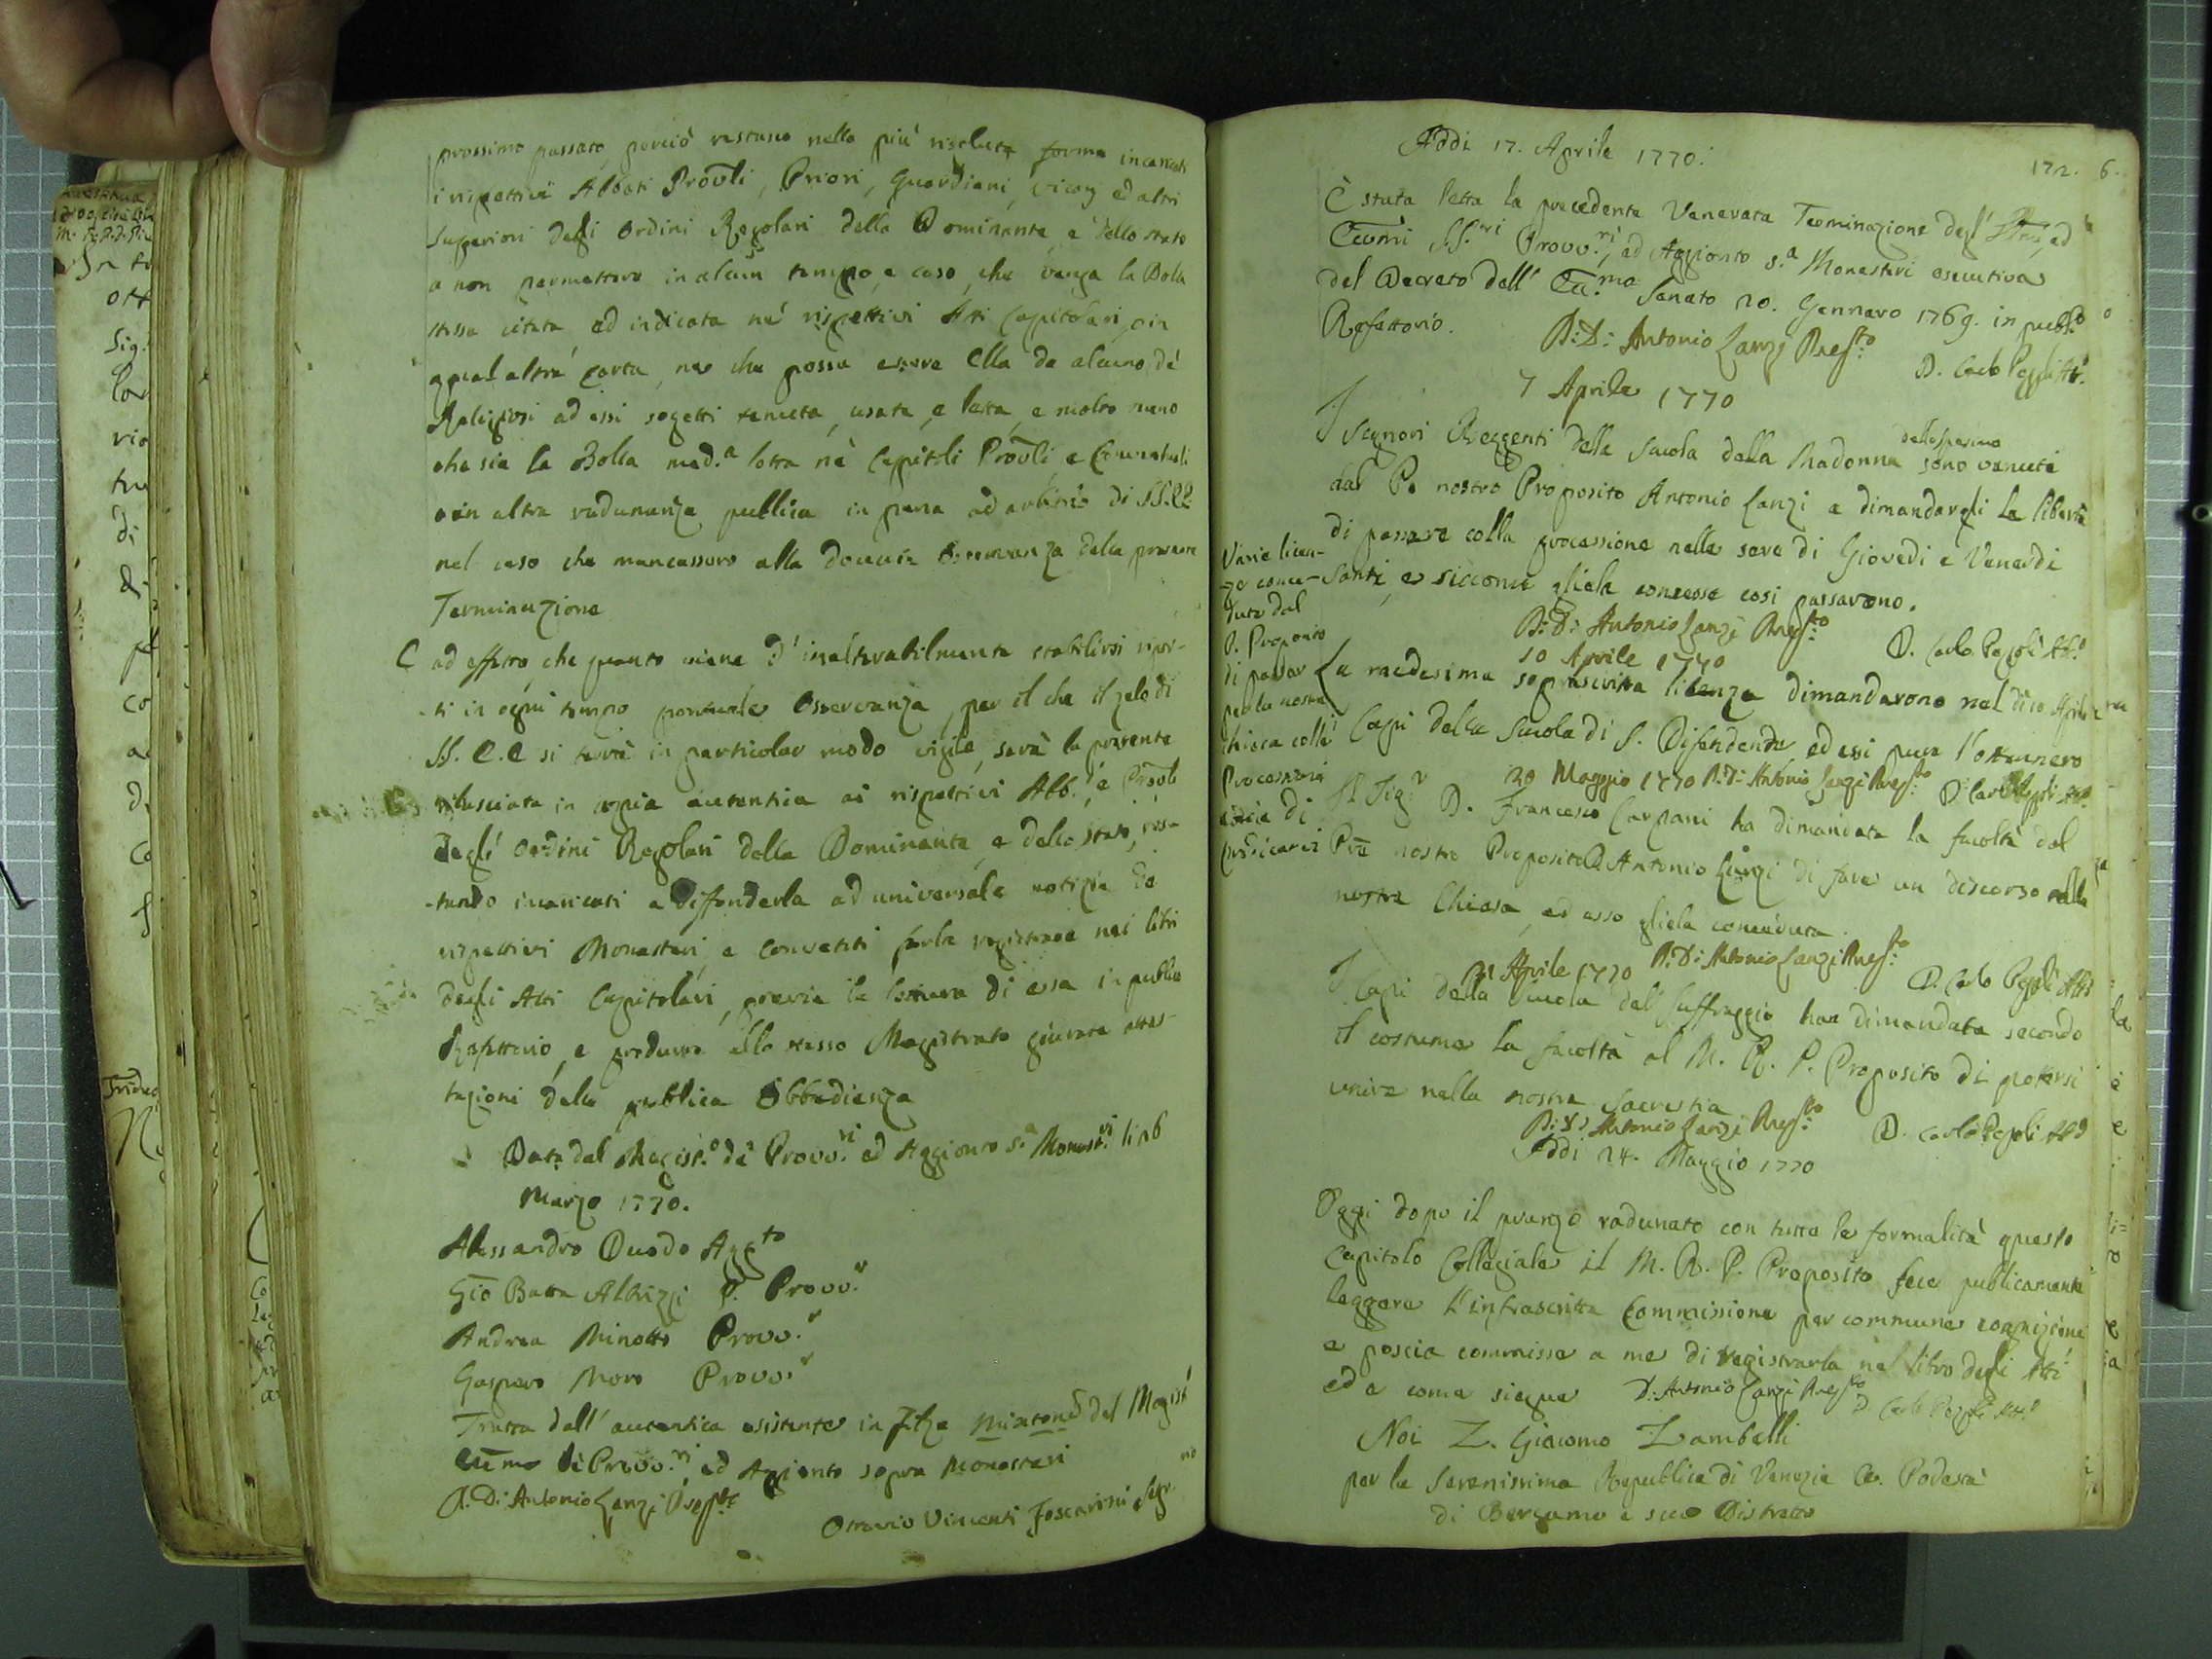 prossimo passato, perciò restano nella più risoluta forma incaricati
i rispettivi Abbati Prouli, Priori, Guardiani, Vicarj ed altri
Superiori degli Ordini Regolari della Dominante, e dello stato
a non permettere in alcun tempo, e caso, che venga la Bolla
stessa citata, ed indicata ne' rispettivi Atti Capitolari, o in
qual altra carta, ne che possa essere Ella da alcuno de'
Religiosi ad essi sogetti tenuta, usata, e letta, e molto meno
che sia la Bolla med.a letta ne' Capitoli Prouli, e Conventuali
o in altra radunanza publica in pena ad arbitrio di SS.EE
nel caso che mancassero alla dovuta Osservanza della presente
Terminazione
E ad effetto, che quanto viene d'inalterabilmente stabilirsi ripor-
-ti in ogni tempo pontuale Osservanza, per il che il zelo di
SS. E.E si terrà in particolar modo vigile, sarà la presente
rilasciata in copia autentica ai rispettivi Abb.i, e Prouli
degli Ordini Regolari della Dominante, e dello stato, res-
-tando incaricati a diffonderla ad universale notizia de
rispettivi Monasteri, e Conventi farla registrare nei libri
degli Atti Capitolari, previa la lettura di essa in publico
Refettorio, e produrre allo stesso Magistrato giurate attes-
tazioni della publica Obbedienza
Data dal Magist.o de' Provv.ri ed Aggionto s.a Monast.ri li 26
Marzo 1770.
Alessandro Duodo Agg.to
Gio Batta Albrizzi P. Provv.r
Andrea Minotto Provv.r
Gasparo Moro Provv.r
Tratta dall'autentica esistente in Filza del Magist.
Eccmo de Provv.ri, ed Agionto sopra Monasteri
P. D: Antonio Lanzi Prep.to
Ottavio Vincenti Foscarini Segr.rio
172. 6.
Addi 17. Aprile 1770.
È stata letta la precedente Venerata Terminazione degl' Illmi, ed
Eccmi SS.ri Provv.ri, ed Aggionto s.a Monasteri esecutiva
del Decreto dell' Ecc.mo Senato 20. Gennaro 1769. in publ.o
Refettorio. P: D: Antonio Lanzi Prep.to
D. Carlo Peppoli Att.
7 Aprile 1770
I Signori Reggenti della Scuola della Madonna dello Spasimo sono venuti
dal P. nostro Proposito Antonio Lanzi a dimandargli la libertà
di passare colla processione nelle sere di Giovedi e Venerdi
Santi, e siccome gliela concesse cosi passarono.
P: D: Antonio Lanzi Prep.to D. Carlo Peppoli Att.o
Varie licen-
-ze conce-
dute dal
P. Proposito
di passar
per la nostra
chiesa colle
Processioni
e di
predicarvi
10 Aprile 1770
La medesima soprascritta licenza dimandarono nel di 10 Aprile
i Capi della Scuola di S. Difendende, ed essi pure l'ottennero
20 Maggio 1770 P: D: Antonio Lanzi Prep.to D. Carlo Peppoli Att.o
Il Sig.r D. Francesco Carpani ha dimandata la facoltà dal
Pre nostro Proposito D. Antonio Lanzi di fare un discorso nella
nostra Chiesa, ed esso gliela conceduta.
21 Aprile 1770 P: D: Antonio Lanzi Prep.to D. Carlo Peppoli Att.o
I Capi della Scuola del Suffraggio han dimandata secondo
il costume la facoltà al M. R. P. Proposito di potersi
unire nella nostra Sacrestia
P: D: Antonio Lanzi Prep.to D. Carlo Peppoli Att.o
Addi 24. Maggio 1770
Oggi dopo il pranzo radunato con tutte le formalità questo
Capitolo Collegiale il M. R. P. Proposito fece publicamente
leggere l'infrascritta Commissione per commune cognizione
e poscia commisse a me di registrarla nel libro degli Atti
ed e come siegue D: Antonio Lanzi Prep.to D. Carlo Peppoli Att.o
Noi Z. Giacomo Zambelli
per la Serenissima Republica di Venezia &c. Podestà
di Bergamo e suo Distretto